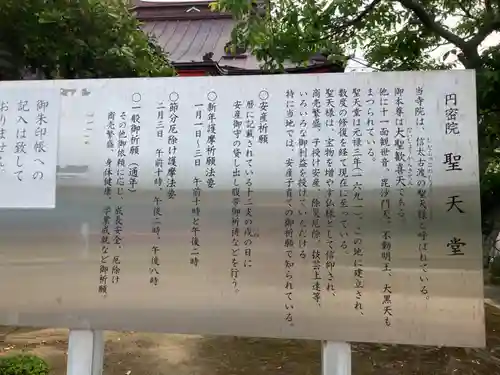 円密院 聖天堂
当寺院は、信太古渡の聖天様と呼ばれている。
御本尊は大聖歓喜天である。
他に十一面観世音、毘沙門天、不動明王、大黒天も
まつられている。
聖天堂は元禄三年(一六九一)、この地に建立され、
数度の修復を経て現在に至っている。
聖天様は、宝物を増やす仏様として信仰され、
商売繁盛、子授け安産、除災厄除、技芸上達等、
いろいろな御利益を授けていただける。
特に当地では、安産子育ての御祈願で知られている。
○安産祈願
暦に記載されている十二支の戌の日に
安産御守の貸し出し、腹帯御祈祷などを行う。
○新年護摩祈願法要
一月一日〜三日 午前十時と午後二時
○節分厄除け護摩法要
二月三日 午前十時、午後二時、午後八時
○一般御祈願(通年)
その他御依頼に応じ、家内安全、厄除け
商売繁盛、身体健康、学業成就など御祈願。
御朱印帳への
記入は致して
おりません